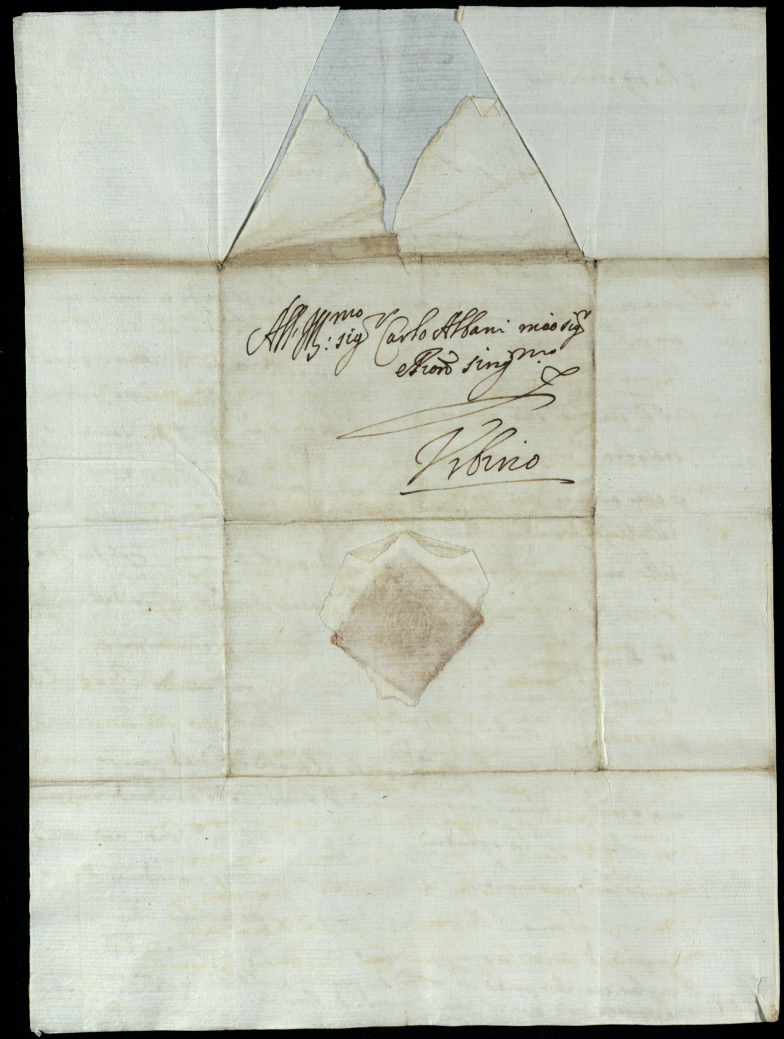 All' Ill:mo sigr Carlo Albani mio sigr
e Pron sing.mo
Vrbino